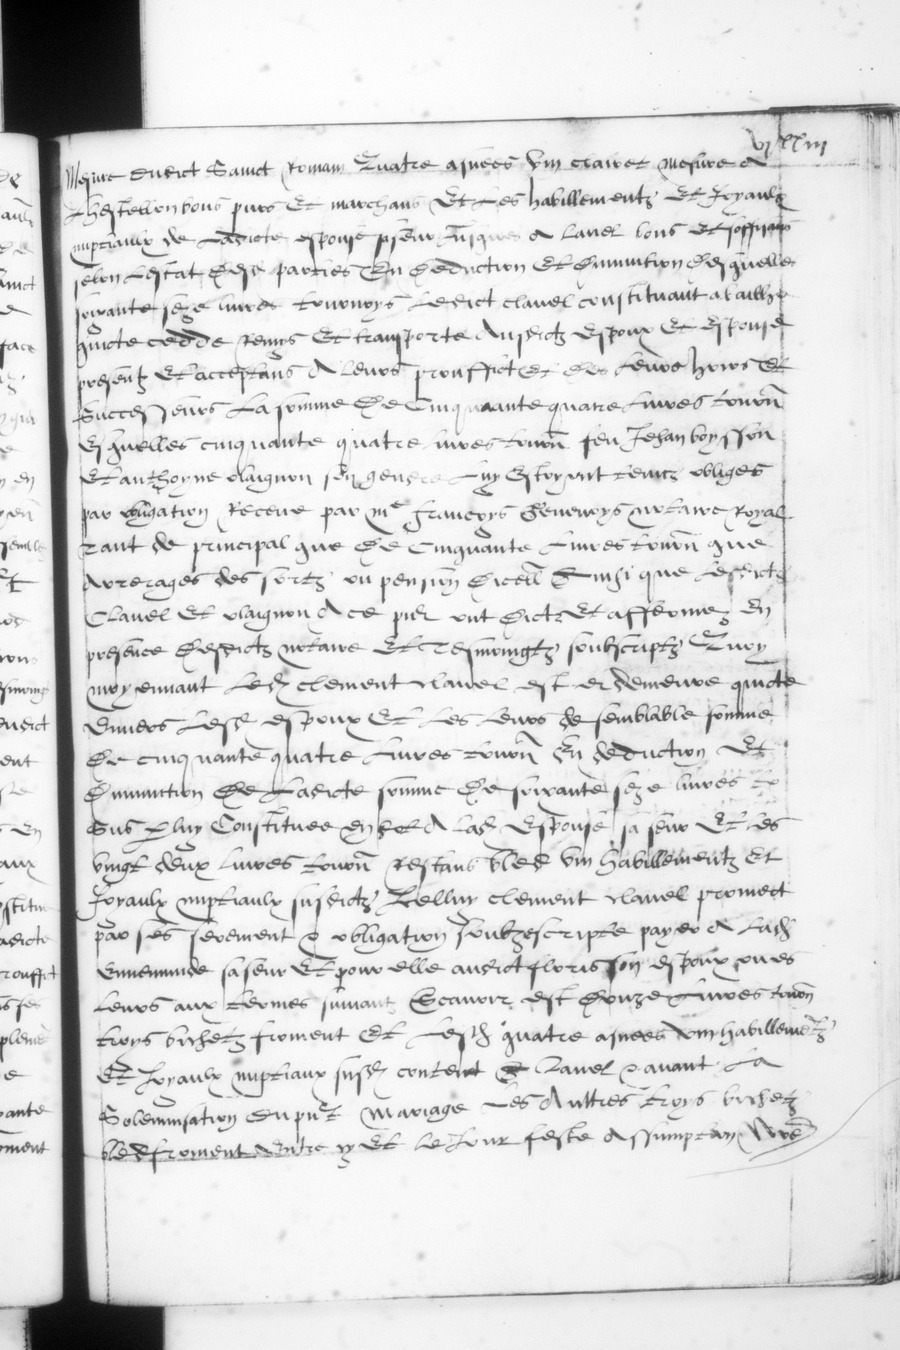 vi xx iii
Mesure dudict Sainct Romain Quatre asnees vin clairet mesure d
bons purs Et marchans Et Les habillementz Et Joyaulx
nuptiaulx de Ladicte espouse sa seur Lavel bons Et souffisans
selon Lestat desd parties En deduction Et diminution desquelles
soixante seze livres tournoys Ledict clavel constituant a
quicte cedde Remes Et transporte Ausdictz Espoux Et Espouse
presentz Et acceptans A leurs prouffict Et des Leurs hoirs Et
Successeurs La somme De Cinquante quatre Livres tourn
Esquelles cinquante quatre livres tourn feu Jehan boysson
Et anthoyne vlaignon son gendre Luy Estoyent tenuz obliges
par obligation Receue par me francoys Genevoys notaire Royal
tant de principal que De Cinquante Livres tourn que
Arreraiges des sortz ou pension dicelle Ainsi que Lesdictz
Clavel Et vlaignon A ce pnt ont dict Et affermez En
presence desdictz notaire Et Tesmoingtz soubscriptz Quoy
moyennant Led clement clavel est et demeure quicte
Envers Lesd espoux Et Les Leurs de semblable somme
De cinquante quatre Livres tourn En deduction Et
Diminution De Ladicte somme De soixante seze livres tz
Sus par luy Constituee en dot A lad Espouse sa seur Et Les
vingt deux Livres tourn Restans bled vin habillementz Et
Joyaulx nuptiaulx susdictz Icelluy clement clavel promect
par ses serement & obligation soubzescripte payer A Lad
Ennemunde sa seur Et pour elle audict floris son espoux ou es
Leurs aux termes suivant Scavoir est Douze Livres tourn
troys bichetz froment Et Lesd quatre asnees vin habillementz
Et Joyaulx nuptiaux susd content Et avant La
Solemnisation du pnt Mariage Les Aultres troys bichetz
bled froment dentre cy Et le Jour feste Assumption Nre